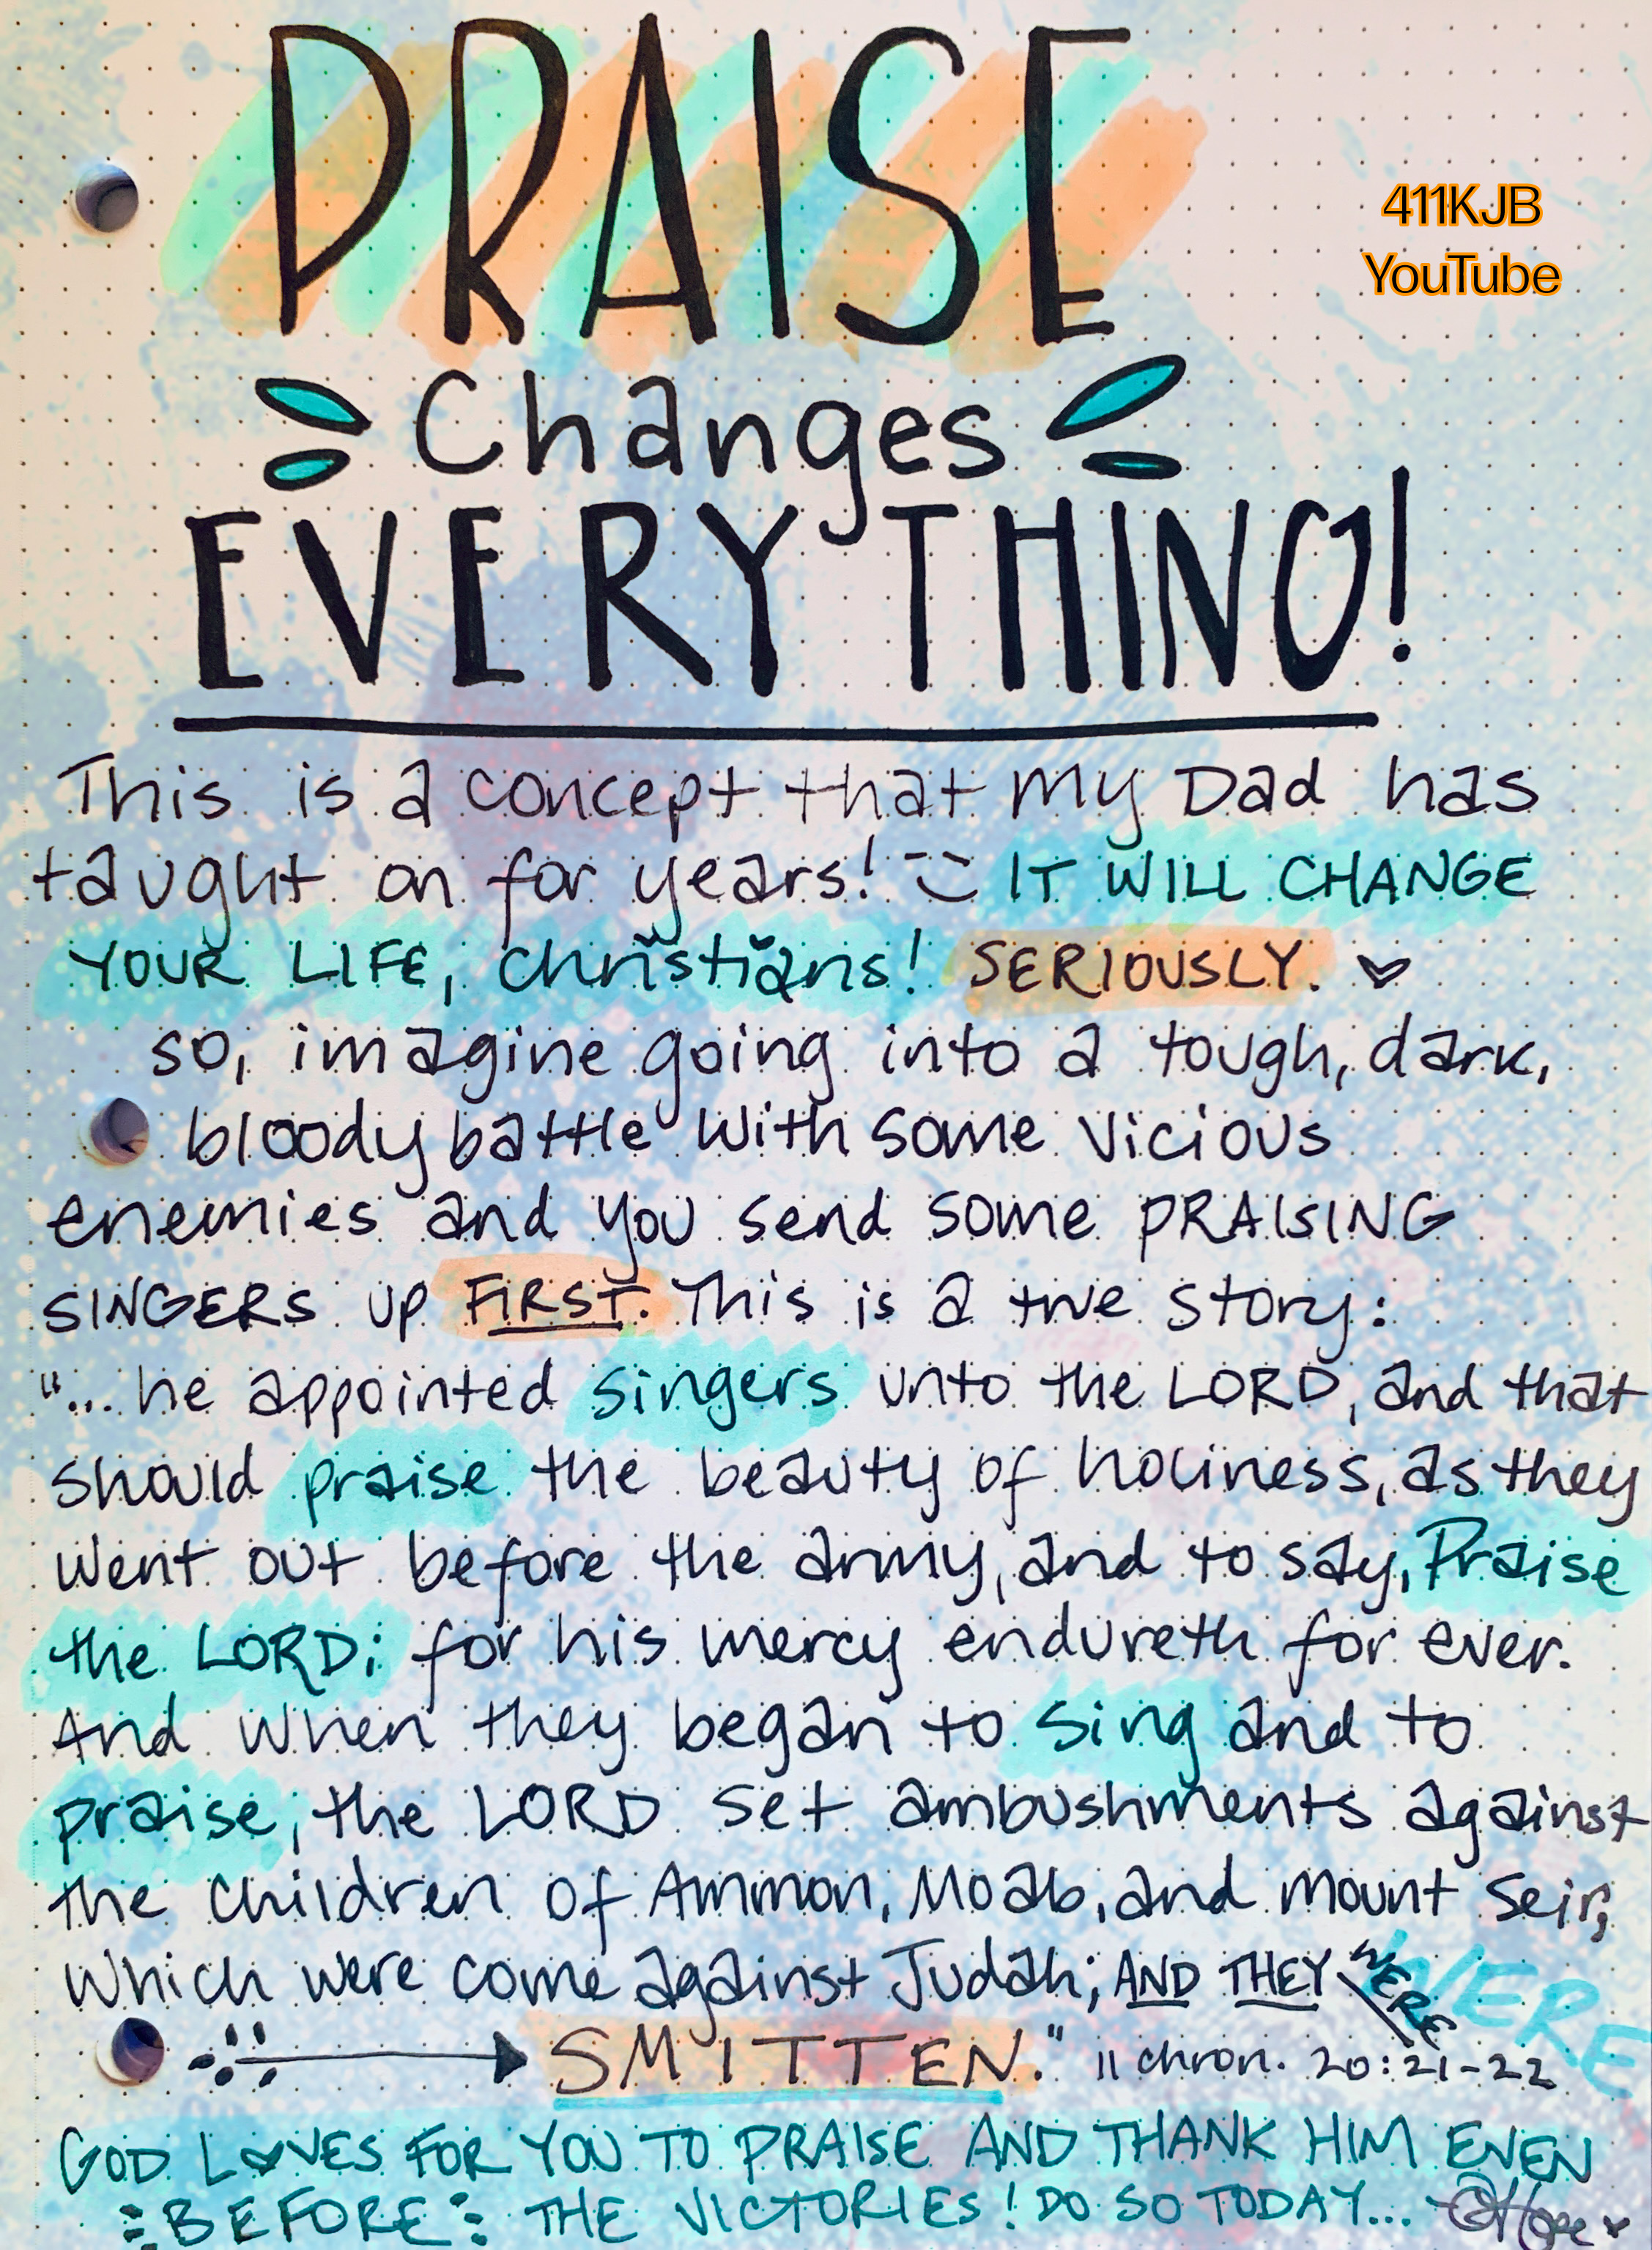 PRAISE
411KJB
YouTube
Changes
EVERYTHING!
This is a concept that my Dad has
taught on for years! IT WILL CHANGE
YOUR LIFE, Christians! SERIOUSLY.
so, imagine going into a tough, dark,
bloody battle with some vicious
enemies and you send some PRAISING
SINGERS up FIRST. This is a true story:
"... he appointed singers unto the LORD, and that
should praise the beauty of holiness, as they
went out before the army, and to say, Praise
the LORD; for his mercy endureth for ever.
And when they began to sing and to
praise, the LORD set ambushments against
the children of Ammon, Moab, and mount Seir,
which were come against Judah; AND THEY WERE WERE
SMITTEN." II chron. 20:21-22
GOD LOVES FOR YOU TO PRAISE AND THANK HIM EVEN
BEFORE THE VICTORIES! DO SO TODAY... @Hope